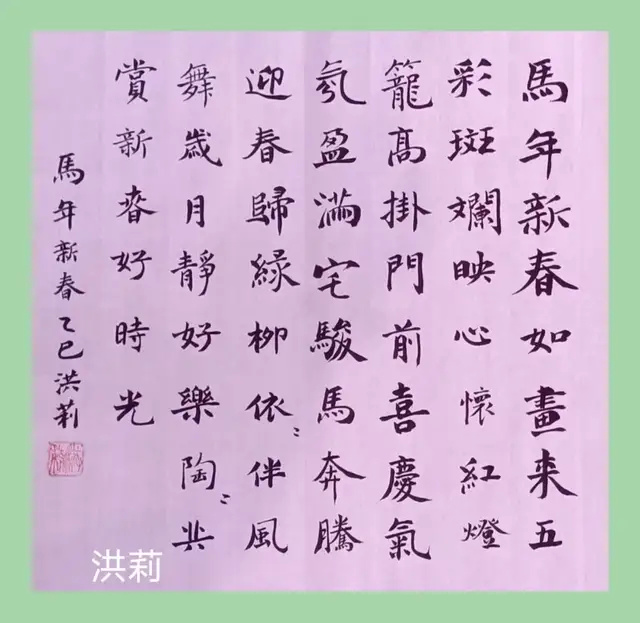 馬年新春如畫来五
彩斑斕映心懷紅燈
籠髙掛門前喜慶氣
氛盈滿宅駿馬奔騰
迎春歸緑柳依〻伴風
舞歲月靜好樂陶〻共
賞新春好時光
馬年新春乙巳洪莉
洪莉